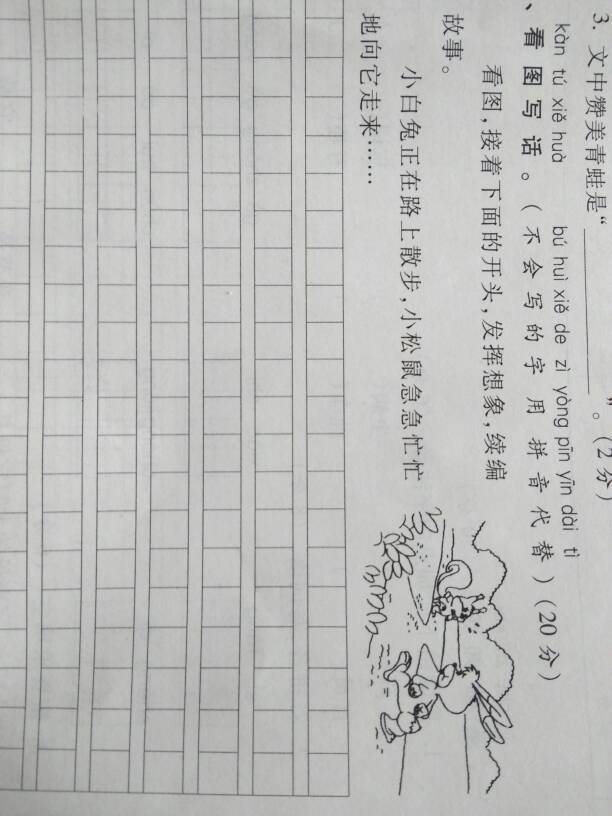 3. 文中赞美青蛙是“ ”。(2分)
kàn tú xiě huà bú huì xiě de zì yòng pīn yīn dài tì
、看图写话。(不会写的字用拼音代替)(20分)
看图,接着下面的开头,发挥想象,续编
故事。
小白兔正在路上散步,小松鼠急急忙忙
地向它走来……